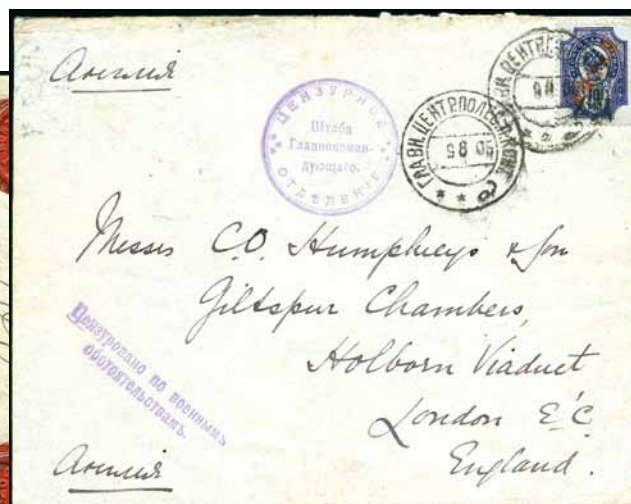 Англія
ЦЕНЗУРНОЕ
Штаба
Главнокоман-
дующаго.
ОТДѢЛЕНІЕ
ГЛАВН. ЦЕНТР. ПОЛЕВ. П. КОНТ.
9 8 05
Messrs C.O. Humphreys & Son
Giltspur Chambers,
Holborn Viaduct
London E.C.
England.
Цензуровано по военнымъ
обстоятельствамъ.
Англія